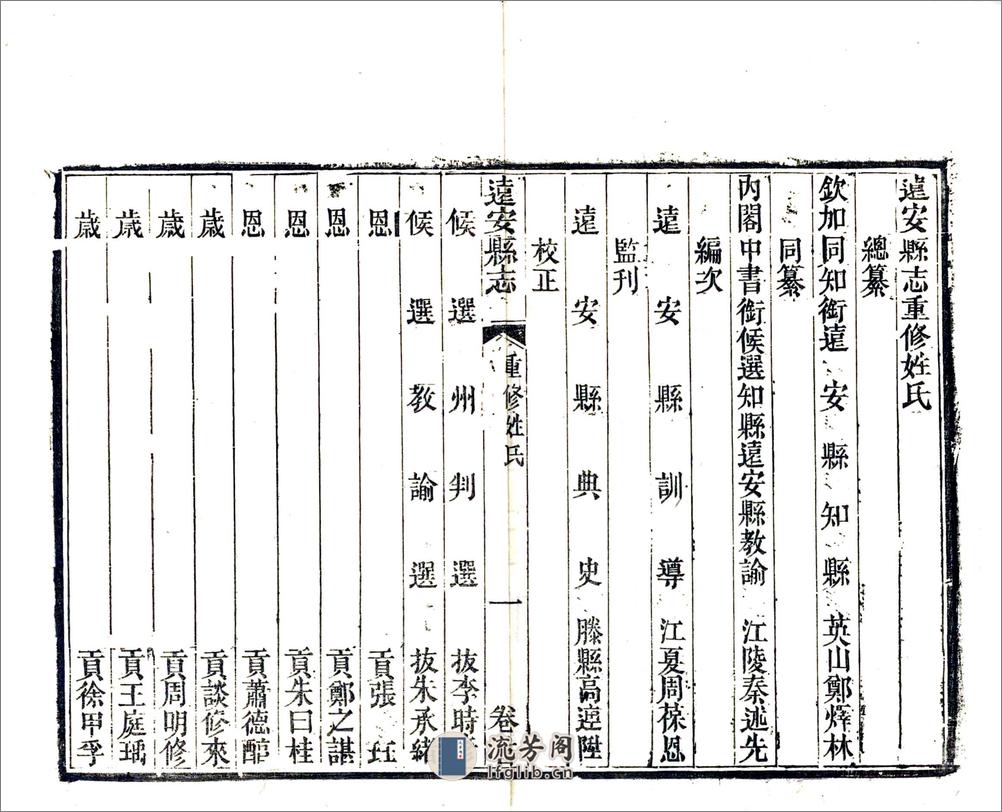 遠安縣志重修姓氏
總纂
欽加同知銜遠安縣知縣英山鄭燡林
同纂
內閣中書銜候選知縣遠安縣教諭江陵秦述先
編次
遠安縣訓導江夏周葆恩
監刊
遠安縣典史滕縣高連陞
校正
遠安縣志
重修姓氏
一
卷
候選州判選拔李時
候選教諭選拔朱承緒
恩貢張珏
恩貢鄭之諶
恩貢朱曰桂
恩貢蕭德醇
歲貢談修來
歲貢周明修
歲貢王庭瑀
歲貢徐甲孚
流芳阁
lfglib.cn